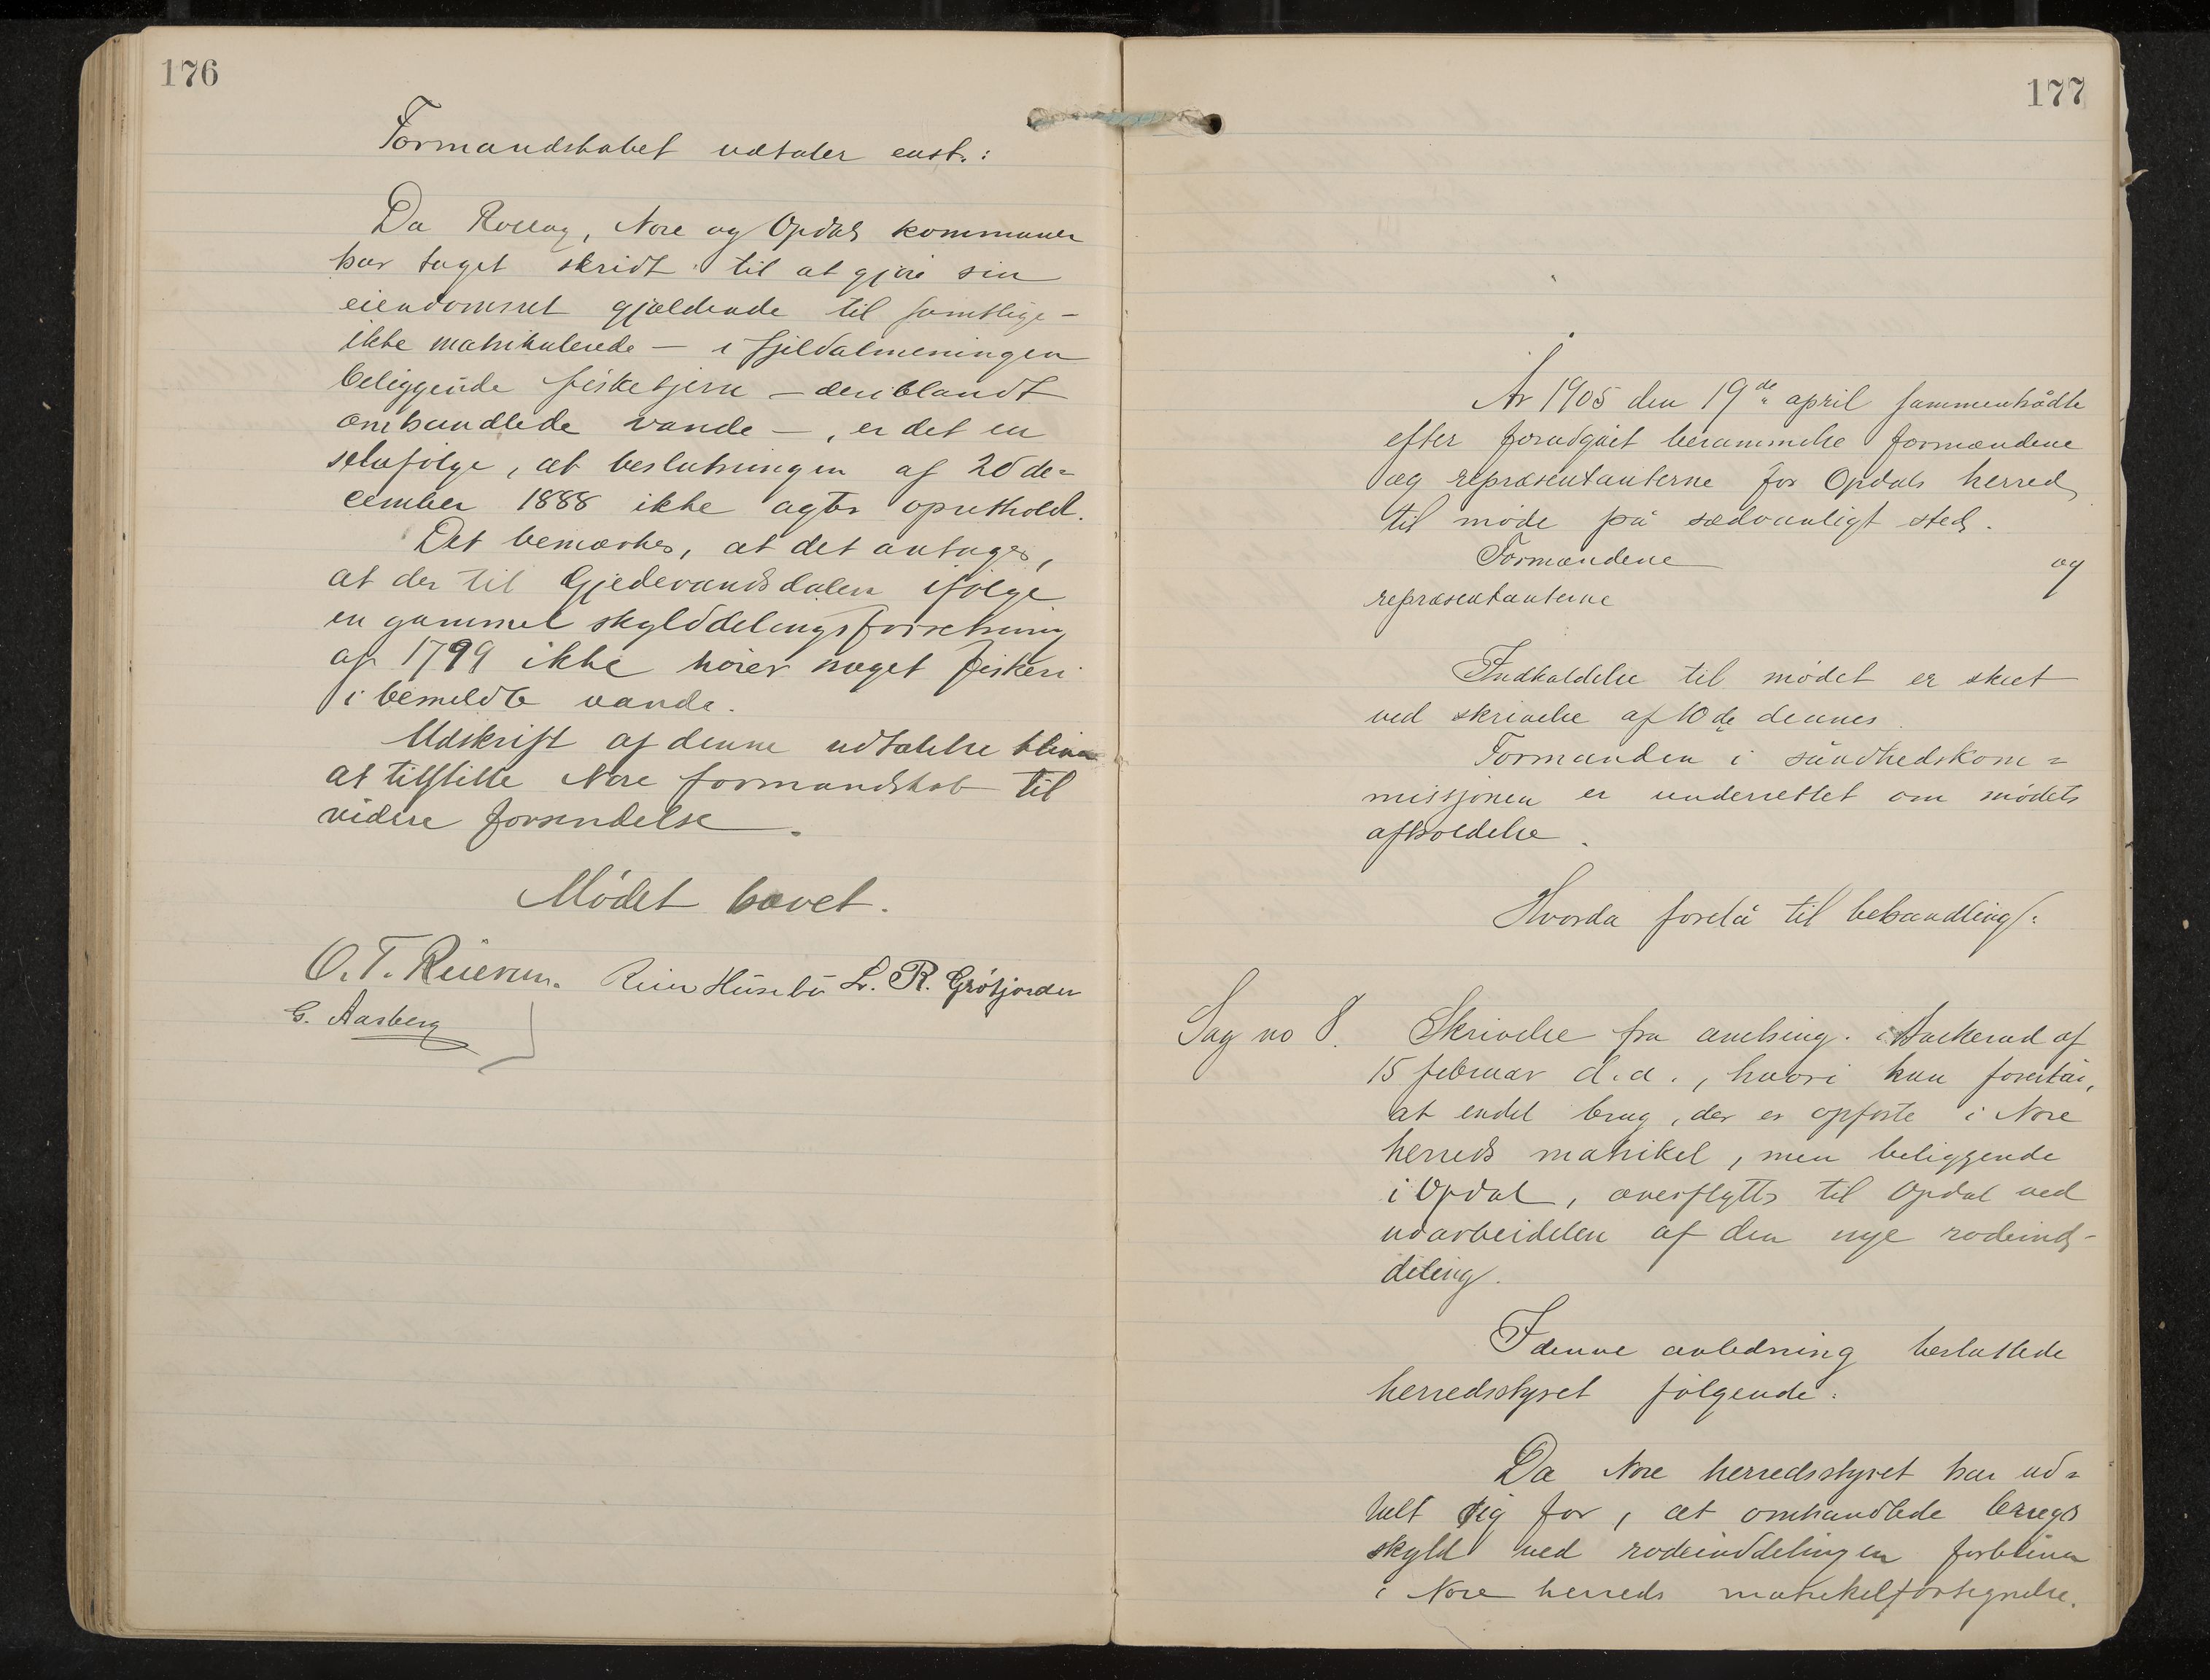 176
Formandskabet udtaler enst.:
Da Rollag, Nore og Opdals kommuner
har taget skridt til at gjøre sin
eiendomsret gjældende til samtlige -
ikke matrikulerede - i fjeldalmeningen
beliggende fisketjern - deriblandt
omhandlede vande -, er det en
selvfølge, at beslutningen af 20 de=
cember 1888 ikke agtes opretholdt.
Det bemærkes, at det antages,
at der til Gjedevandsdalen ifølge
en gammel skylddelingsforretning
af 1799 ikke hører noget fiskeri
i bemeldte vande.
Udskrift af denne udtalelse bliver
at tilstille Nore formandskab til
videre forsendelse.
Mødet hævet.
O. T. Reiersen. Reier Husebø L. R. Grøtjorden
G. Aasberg
177
År 1905 den 19de april sammentrådte
efter forudgået berammelse formændene
og repræsentanterne for Opdals herred
til møde på sædvanligt sted.
Formændene og
repræsentanterne
Indkaldelse til mødet er skeet
ved skrivelse af 10de dennes.
Formanden i sundhedskom=
missjonen er underrettet om mødets
afholdelse.
Hvorda forelå til behandling:
Sag no 8. Skrivelse fra amtsing. i Buskerud af
15 februar d. a., hvori han foreslår,
at endel brug, der er opførte i Nore
herreds matrikel, men beliggende
i Opdal, overflyttes til Opdal ved
udarbeidelen af den nye rodeind-
deling.
I denne anledning besluttede
herredsstyret følgende:
Da Nore herredsstyret har ud=
talt sig for, at omhandlede brugs
skyld ved rodeinddelingen forbliver
i Nore herreds matrikelfortegnelse.